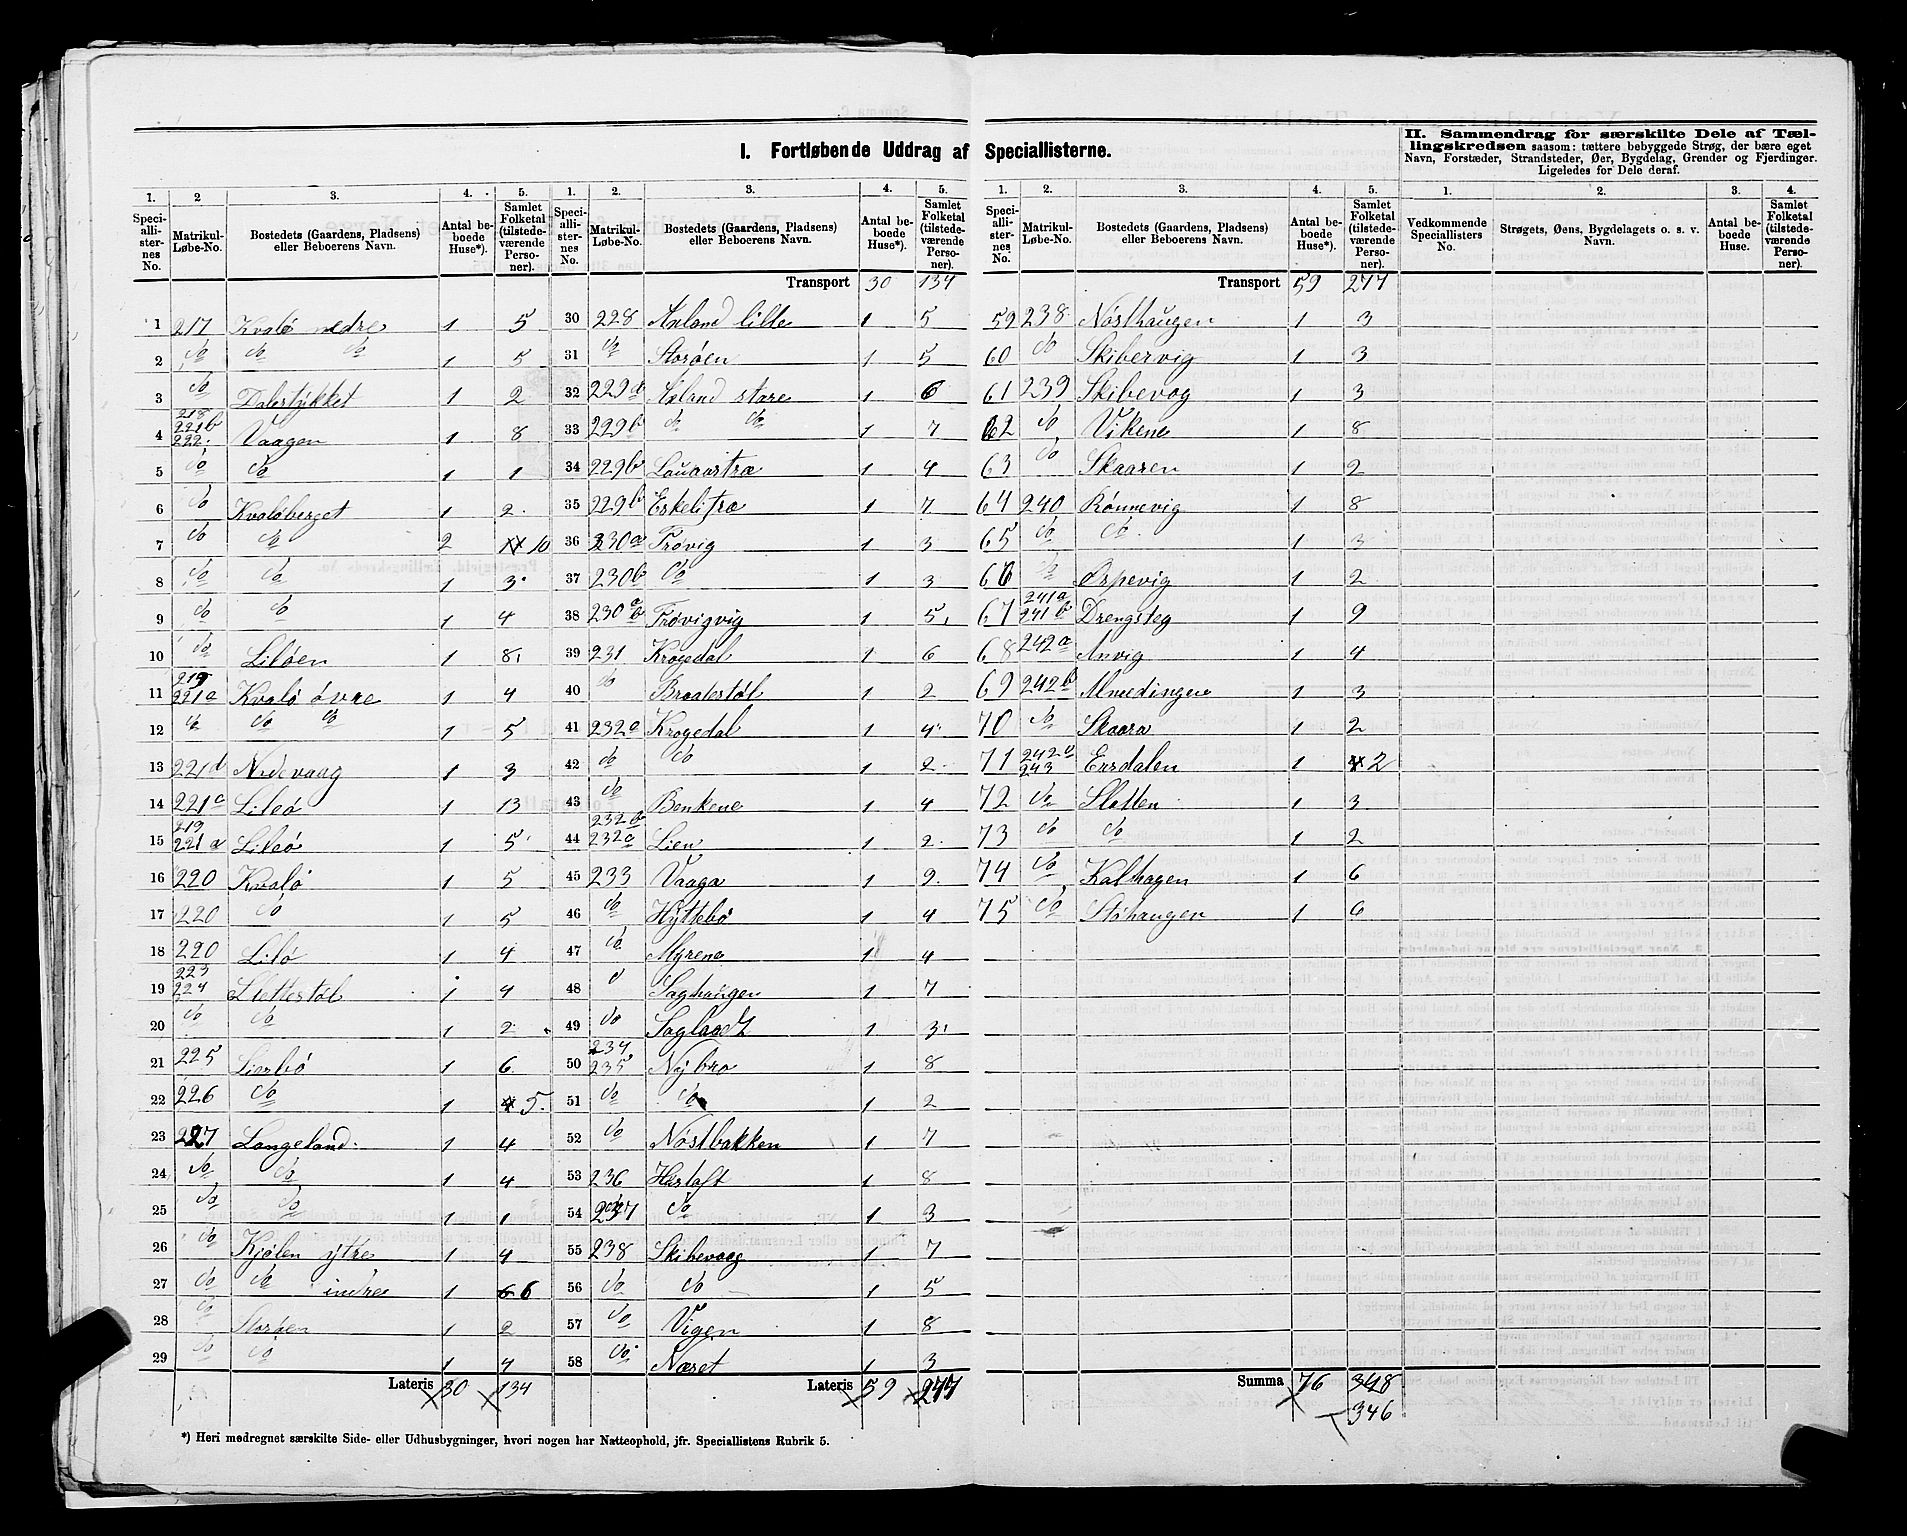 I. Fortløbende Uddrag af Speciallisterne.
II. Sammendrag for særskilte Dele af Tællingskredsen saasom: tættere bebyggede Strøg, der bære eget
Navn, Forstæder, Strandsteder, Øer, Bygdelag, Grender og Fjerdinger.
Ligeledes for Dele deraf.
1. 2 3. 4. 5.
Speciallisternes No. Matrikul-Løbe-No. Bostedets (Gaardens, Pladsens) eller Beboerens Navn. Antal beboede Huse*). Samlet Folketal (tilstedeværende Personer).
1 217 Kvalø nedre 1 5
2 do do do 1 5
3 do Dalestykket 1 2
4 218 221b 222. Vaagen 1 8
5 do do 1 1
6 do Kvaløberget 1 2
7 do do 2 10
8 do do 1 3
9 do do 1 4
10 do Liløen 1 8
11 219 221a Kvalø øvre 1 4
12 do do do 1 5
13 221d Nedevaag 1 3
14 221c Lileø 1 13
15 219 221a Lileø 1 5
16 220 Kvalø 1 5
17 220 do 1 5
18 220 Lilø 1 4
19 223 224 Slettestøl 1 4
20 do do 1 2
21 225 1 6
22 226 do 1 5.
23 227 Langeland 1 4
24 do do 1 4
25 do do 1 1
26 do Kjølen ytre 1 4
27 do do indre 1 6 6
28 do Storøen 1 2
29 do do 1 4
Lateris 30 134
1. 2. 3. 4. 5.
Speciallisternes No. Matrikul-Løbe-No. Bostedets (Gaardens, Pladsens) eller Beboerens Navn. Antal beboede Huse*). Samlet Folketal (tilstedeværende Personer).
Transport 30 134
30 228 Axland lille 1 5
31 do Storøen 1 5
32 229a Axland store 1 6
33 229b do do 1 7
34 229b 1 4
35 229b 1 7
36 230a Frøvig 1 3
37 230b do 1 3
38 230 a b Frøvigvig 1 5
39 231 Krogedal 1 6
40 do Braatestøl 1 2
41 232a Krogedal 1 4
42 do do 1 2
43 do Benkene 1 4
44 232b 232c Lien 1 2
45 233 Vaaga 1 9
46 do Hyttebø 1 4
47 do Myrene 1 4
48 Saghaugen 1 7
49 do 1 3
50 234 235 Nybro 1 8
51 do do 1 2
52 do Nøstbakken 1 7
53 236 1 8
54 237 do 1 3
55 238 Skibevaag 1 7
56 do do 1 5
57 do Vigen 1 8
58 do Næset 1 3
Lateris 59 277
1. 2. 3. 4. 5.
Speciallisternes No. Matrikul-Løbe-No. Bostedets (Gaardens, Pladsens) eller Beboerens Navn. Antal beboede Huse*). Samlet Folketal (tilstedeværende Personer).
Transport 59 277
59 238 Nøsthaugen 1 3
60 do Skibervig 1 3
61 239 Skibevog 1 3
62 do Vikene 1 8
63 do Skaaren 1 2
64 240 Rønnevig 1 8
65 do do 1 3
66 do Ørpevig 1 2
67 241a 241b Drengsteg 1 9
68 242a Anvig 1 4
69 242b Almedingen 1 3
70 do Skaara 1 2
71 242 243 Ersdalen 1 2
72 do Sletten 1 3
73 do do 1 2
74 do Kalhagen 1 6
75 do Støhaugen 1 6
Summa 76 348
346
1. 2. 3. 4.
Vedkommende Speciallisters No. Strøgets, Øens, Bygdelagets o. s. v. Navn. Antal beboede Huse. Samlet Folketal (tilstedeværende Personer).
*) Heri medregnet særskilte Side- eller Udhusbygninger, hvori nogen har Natteophold, jfr. Speciallistens Rubrik 5.